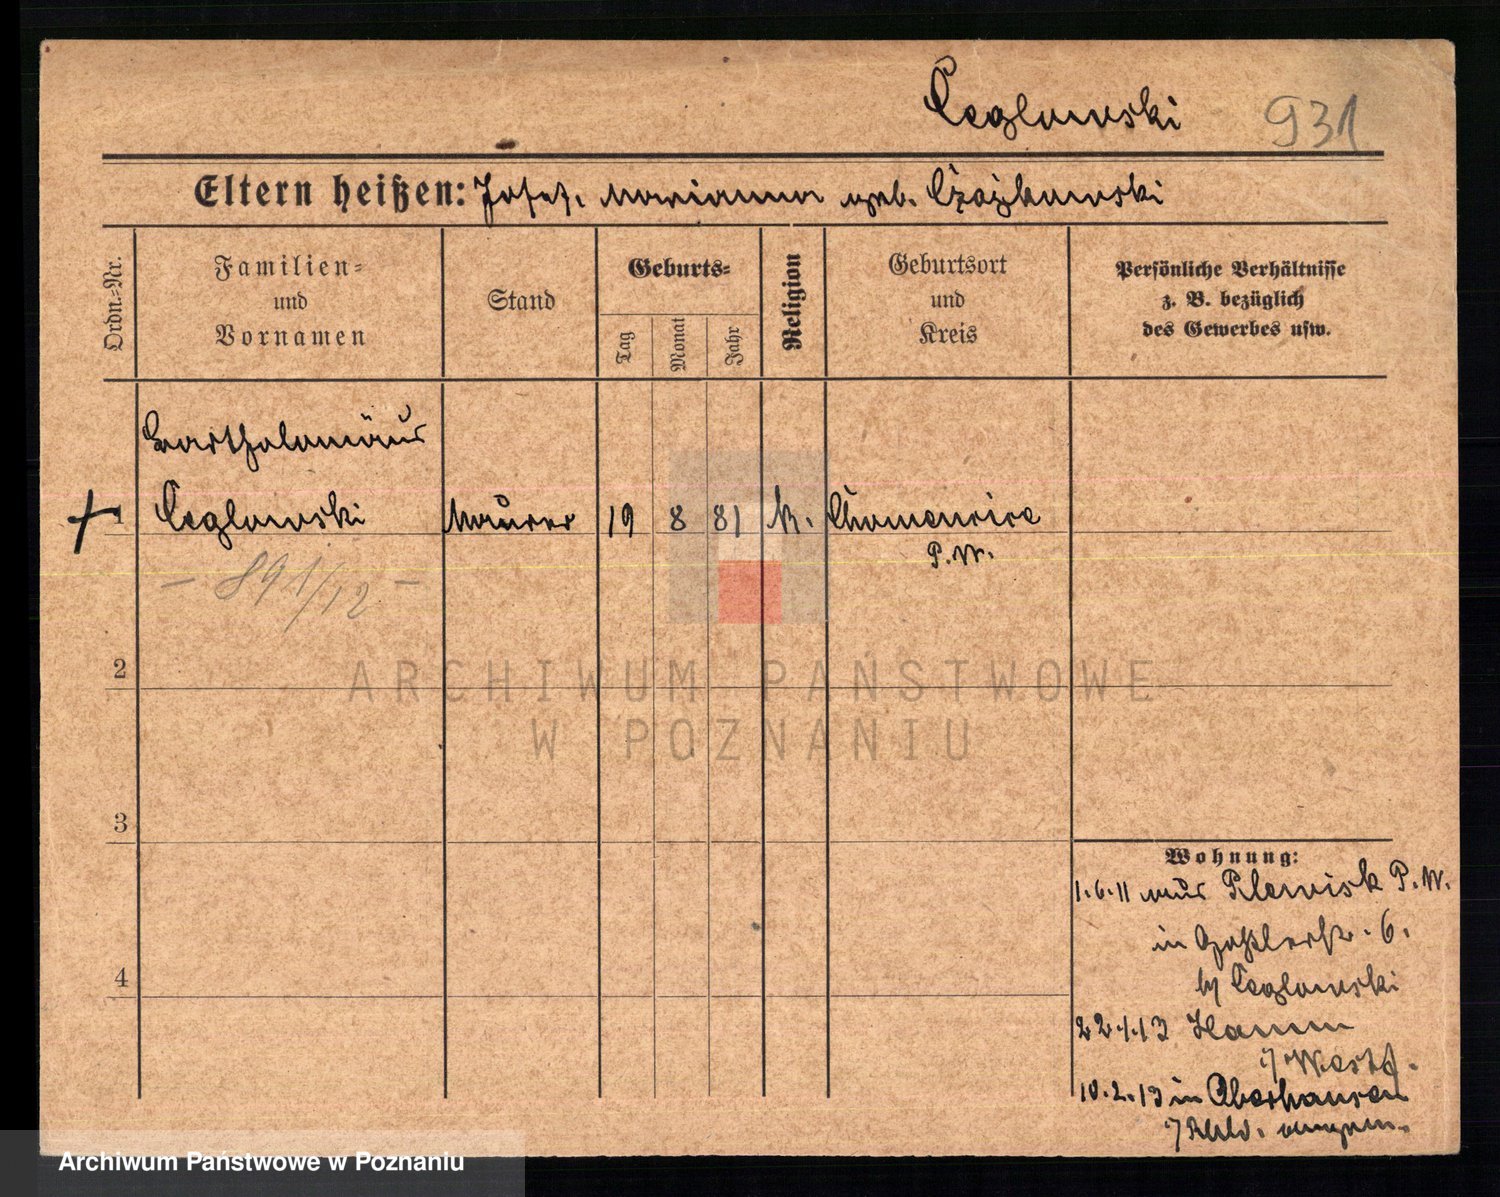 Ceglowski 931
Eltern heißen: Josef, Marianna geb. Czajkowski
Ordn.=Nr.
Familien=
und
Vornamen
Stand
Geburts=
Tag
Monat
Jahr
Religion
Geburtsort
und
Kreis
Persönliche Verhältnisse
z. B. bezüglich
des Gewerbes usw.
Bartholomäus
1 Ceglowski Maurer 19 8 81 k. Chomencice
P. W.
– 891/12 –
2
3
4
Wohnung:
1.6.11 aus Plewisk P. W.
in Goßlerstr. 6.
bei Ceglowski
22.1.13 Hamm
i/Westf.
10.2.13 in Oberhausen
i/Rhld.
ARCHIWUM PAŃSTWOWE
W POZNANIU
Archiwum Państwowe w Poznaniu